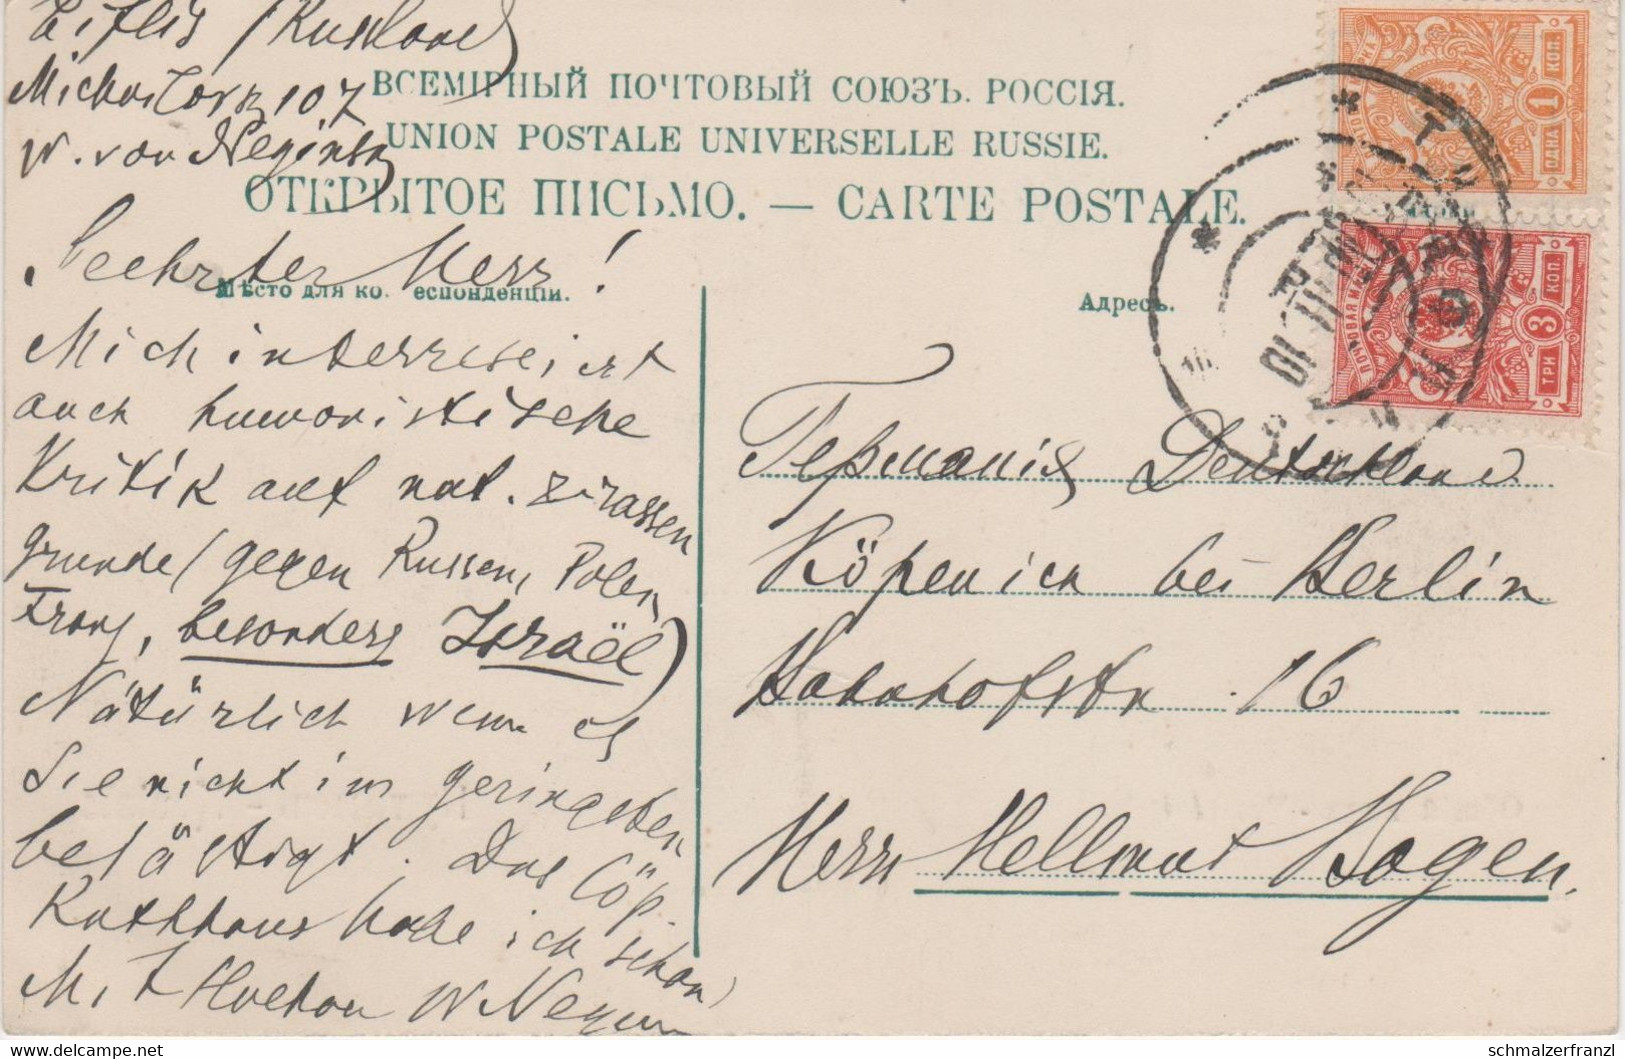 Tiflis (Russland)
107
W. von
ВСЕМІРНЫЙ ПОЧТОВЫЙ СОЮЗЪ. РОССІЯ.
UNION POSTALE UNIVERSELLE RUSSIE.
ОТКРЫТОЕ ПИСЬМО. — CARTE POSTALE.
Geehrter Herr!
Мѣсто для ко еспонденціи.
Mich interreseirt
auch humoristische
Kritik auf nat. & rassen
grunde (gegen Russen, Polen,
Franz, besonders Israël)
Nätürlich wenn es
Sie nicht im geringsten
belästigt. Das Cöp.
Rathhaus habe ich schon
Mit Hochan W
Адресъ.
Германія Deutschland
Köpenick bei Berlin
Bahnhofstr. 16
Herrn Hellmut Bogen.
1 КОП.
ОДНА
ПОЧТОВАЯ МАРКА
3 КОП.
ТРИ
schmalzerfranzl